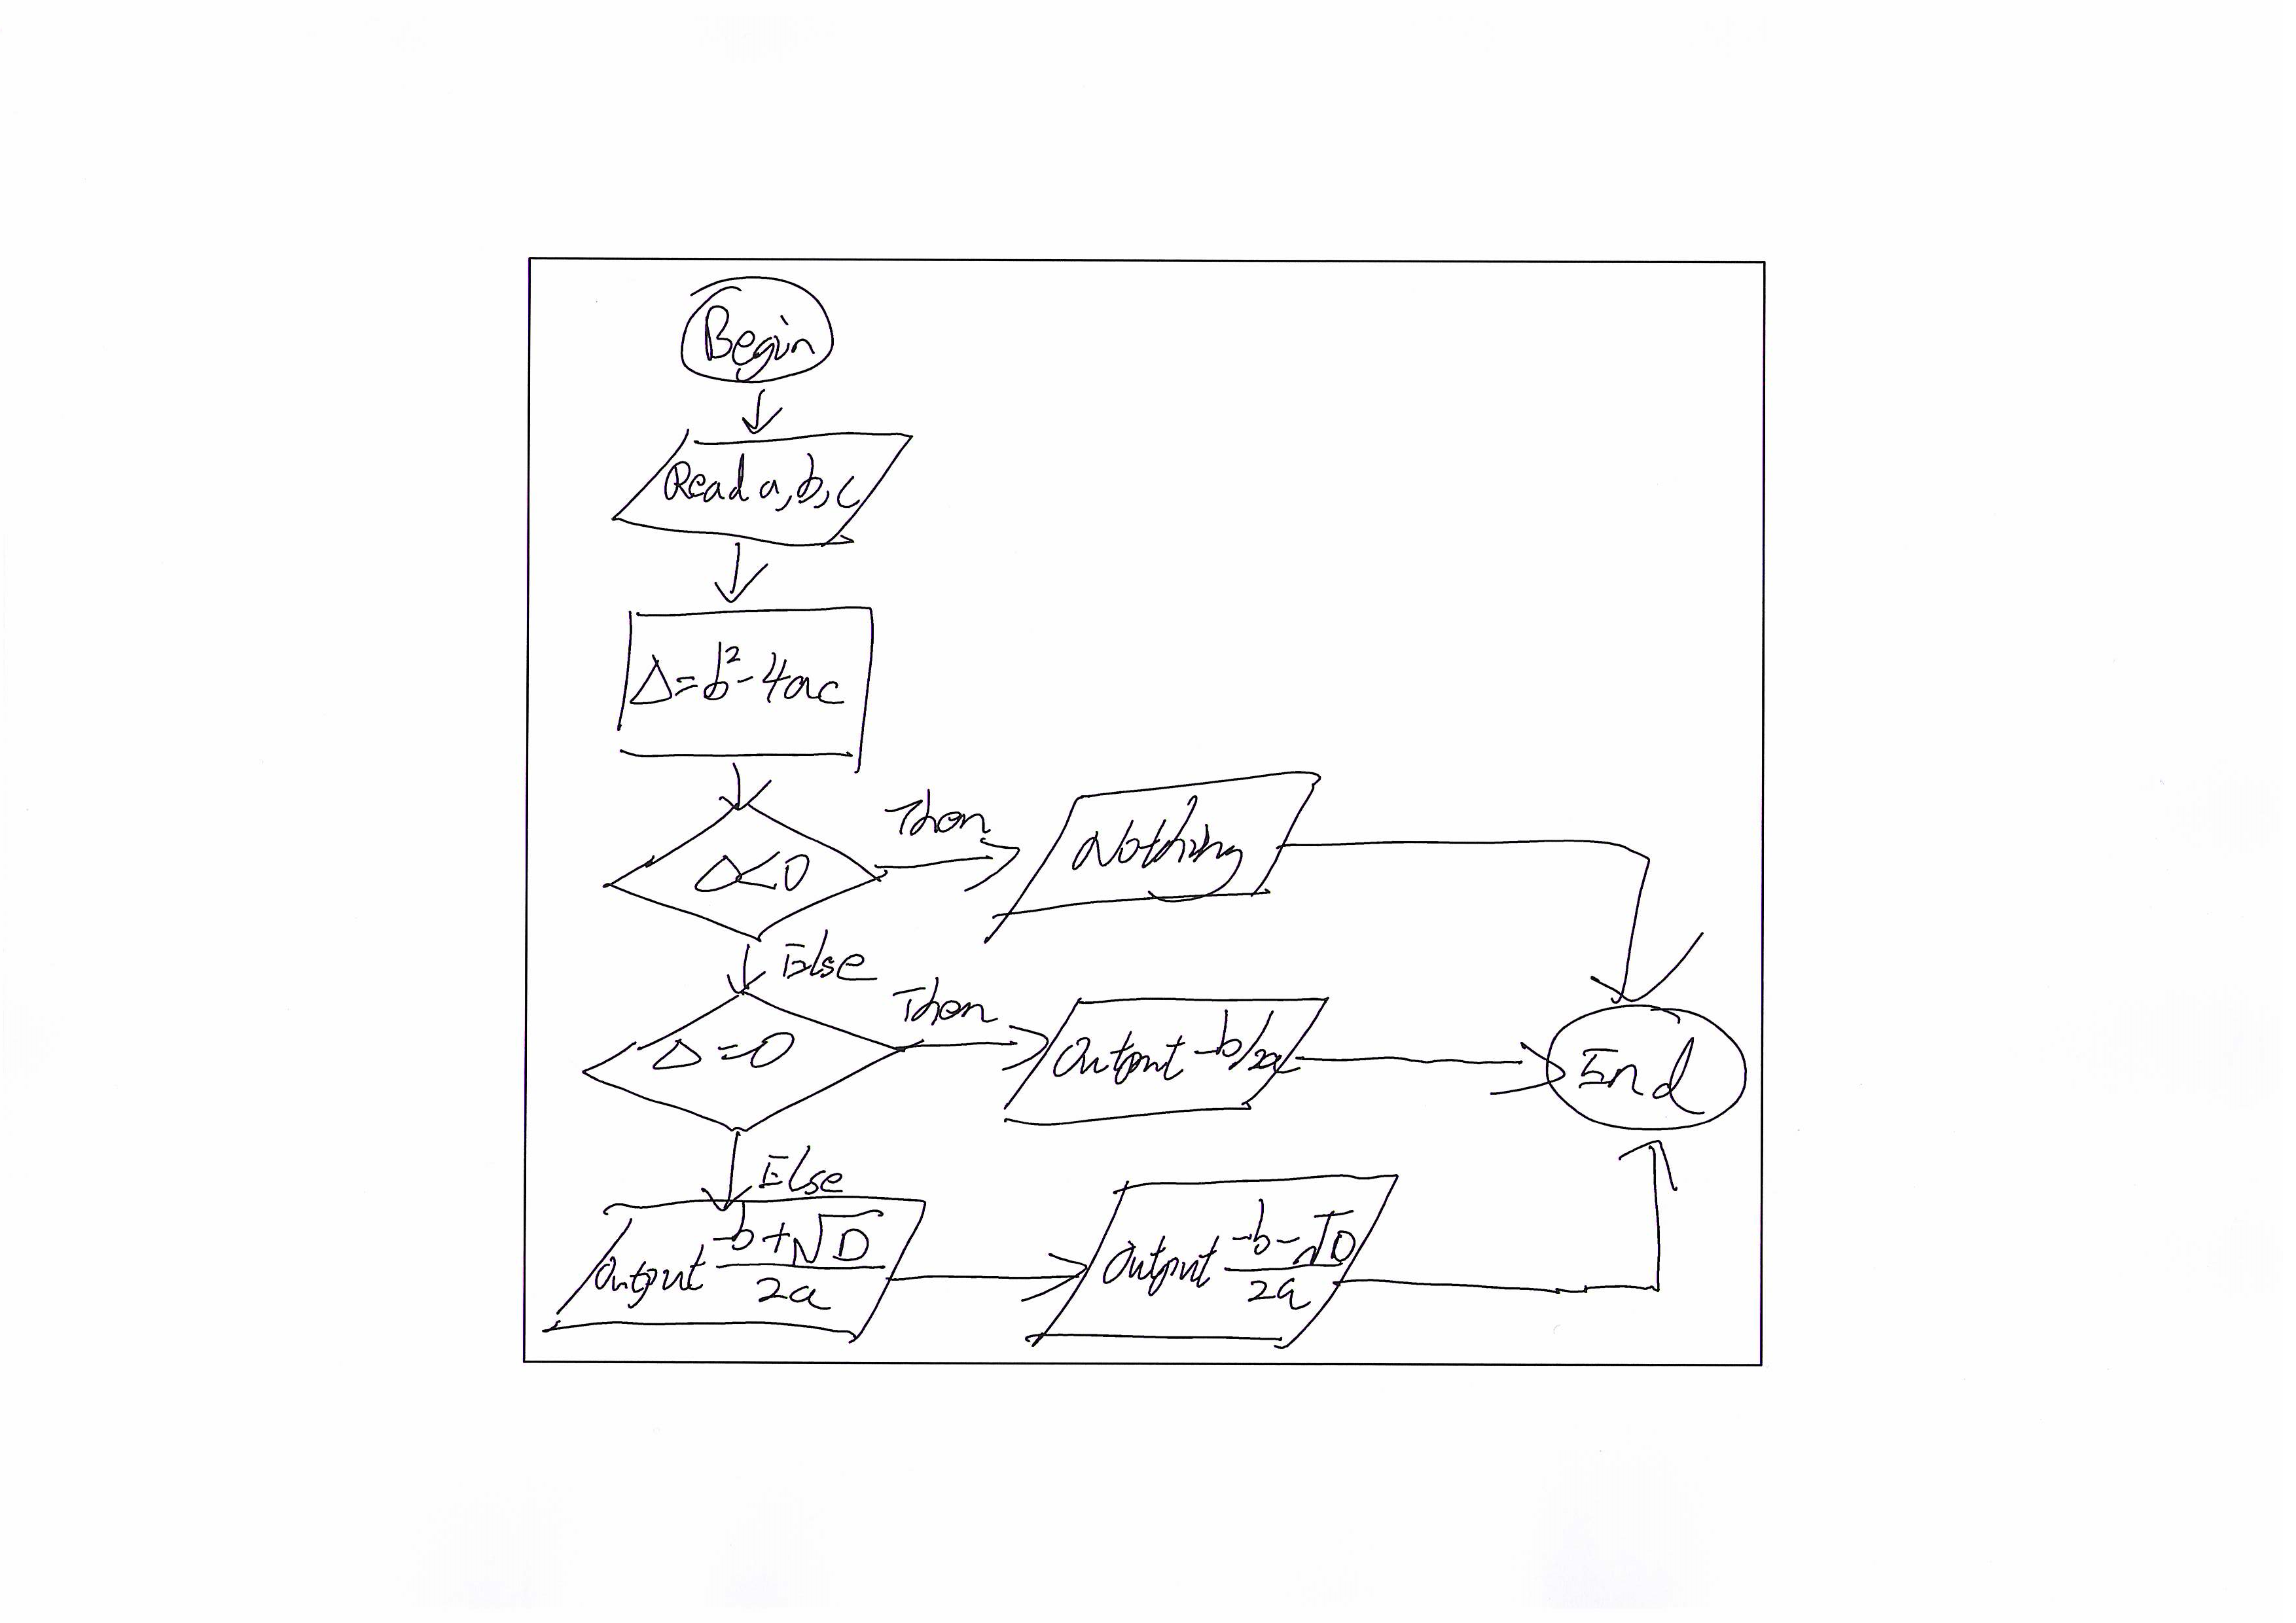 Begin
Read a, b, c
Δ=b²-4ac
Δ<0
Then
Nothing
Else
Δ=0
Then
Output -b/2a
End
Else
Output -b+√D/2a
Output -b-√D/2a